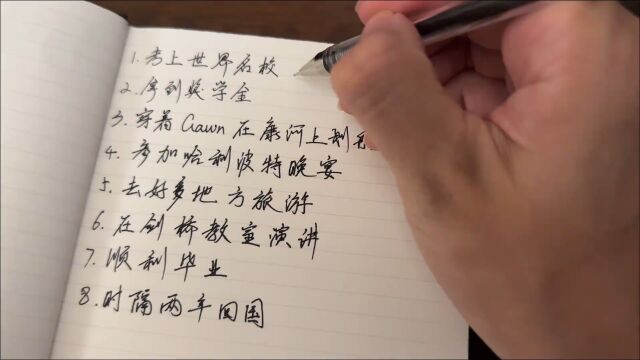 1.考上世界名校
2.拿到奖学金
3.穿着Gawn在康河上划
4.参加哈利波特晚宴
5.去好多地方旅游
6.在剑桥教室演讲
7.顺利毕业
8.时隔两年回国